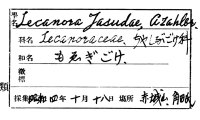 学名 Lecanora Yasudae, A. Zahlbr.
科名 Lecanoraceae. ちゃしぶごけ科
和名 もゑぎごけ.
徴標
類
採集 昭和四年十月十八日 場所 赤城山